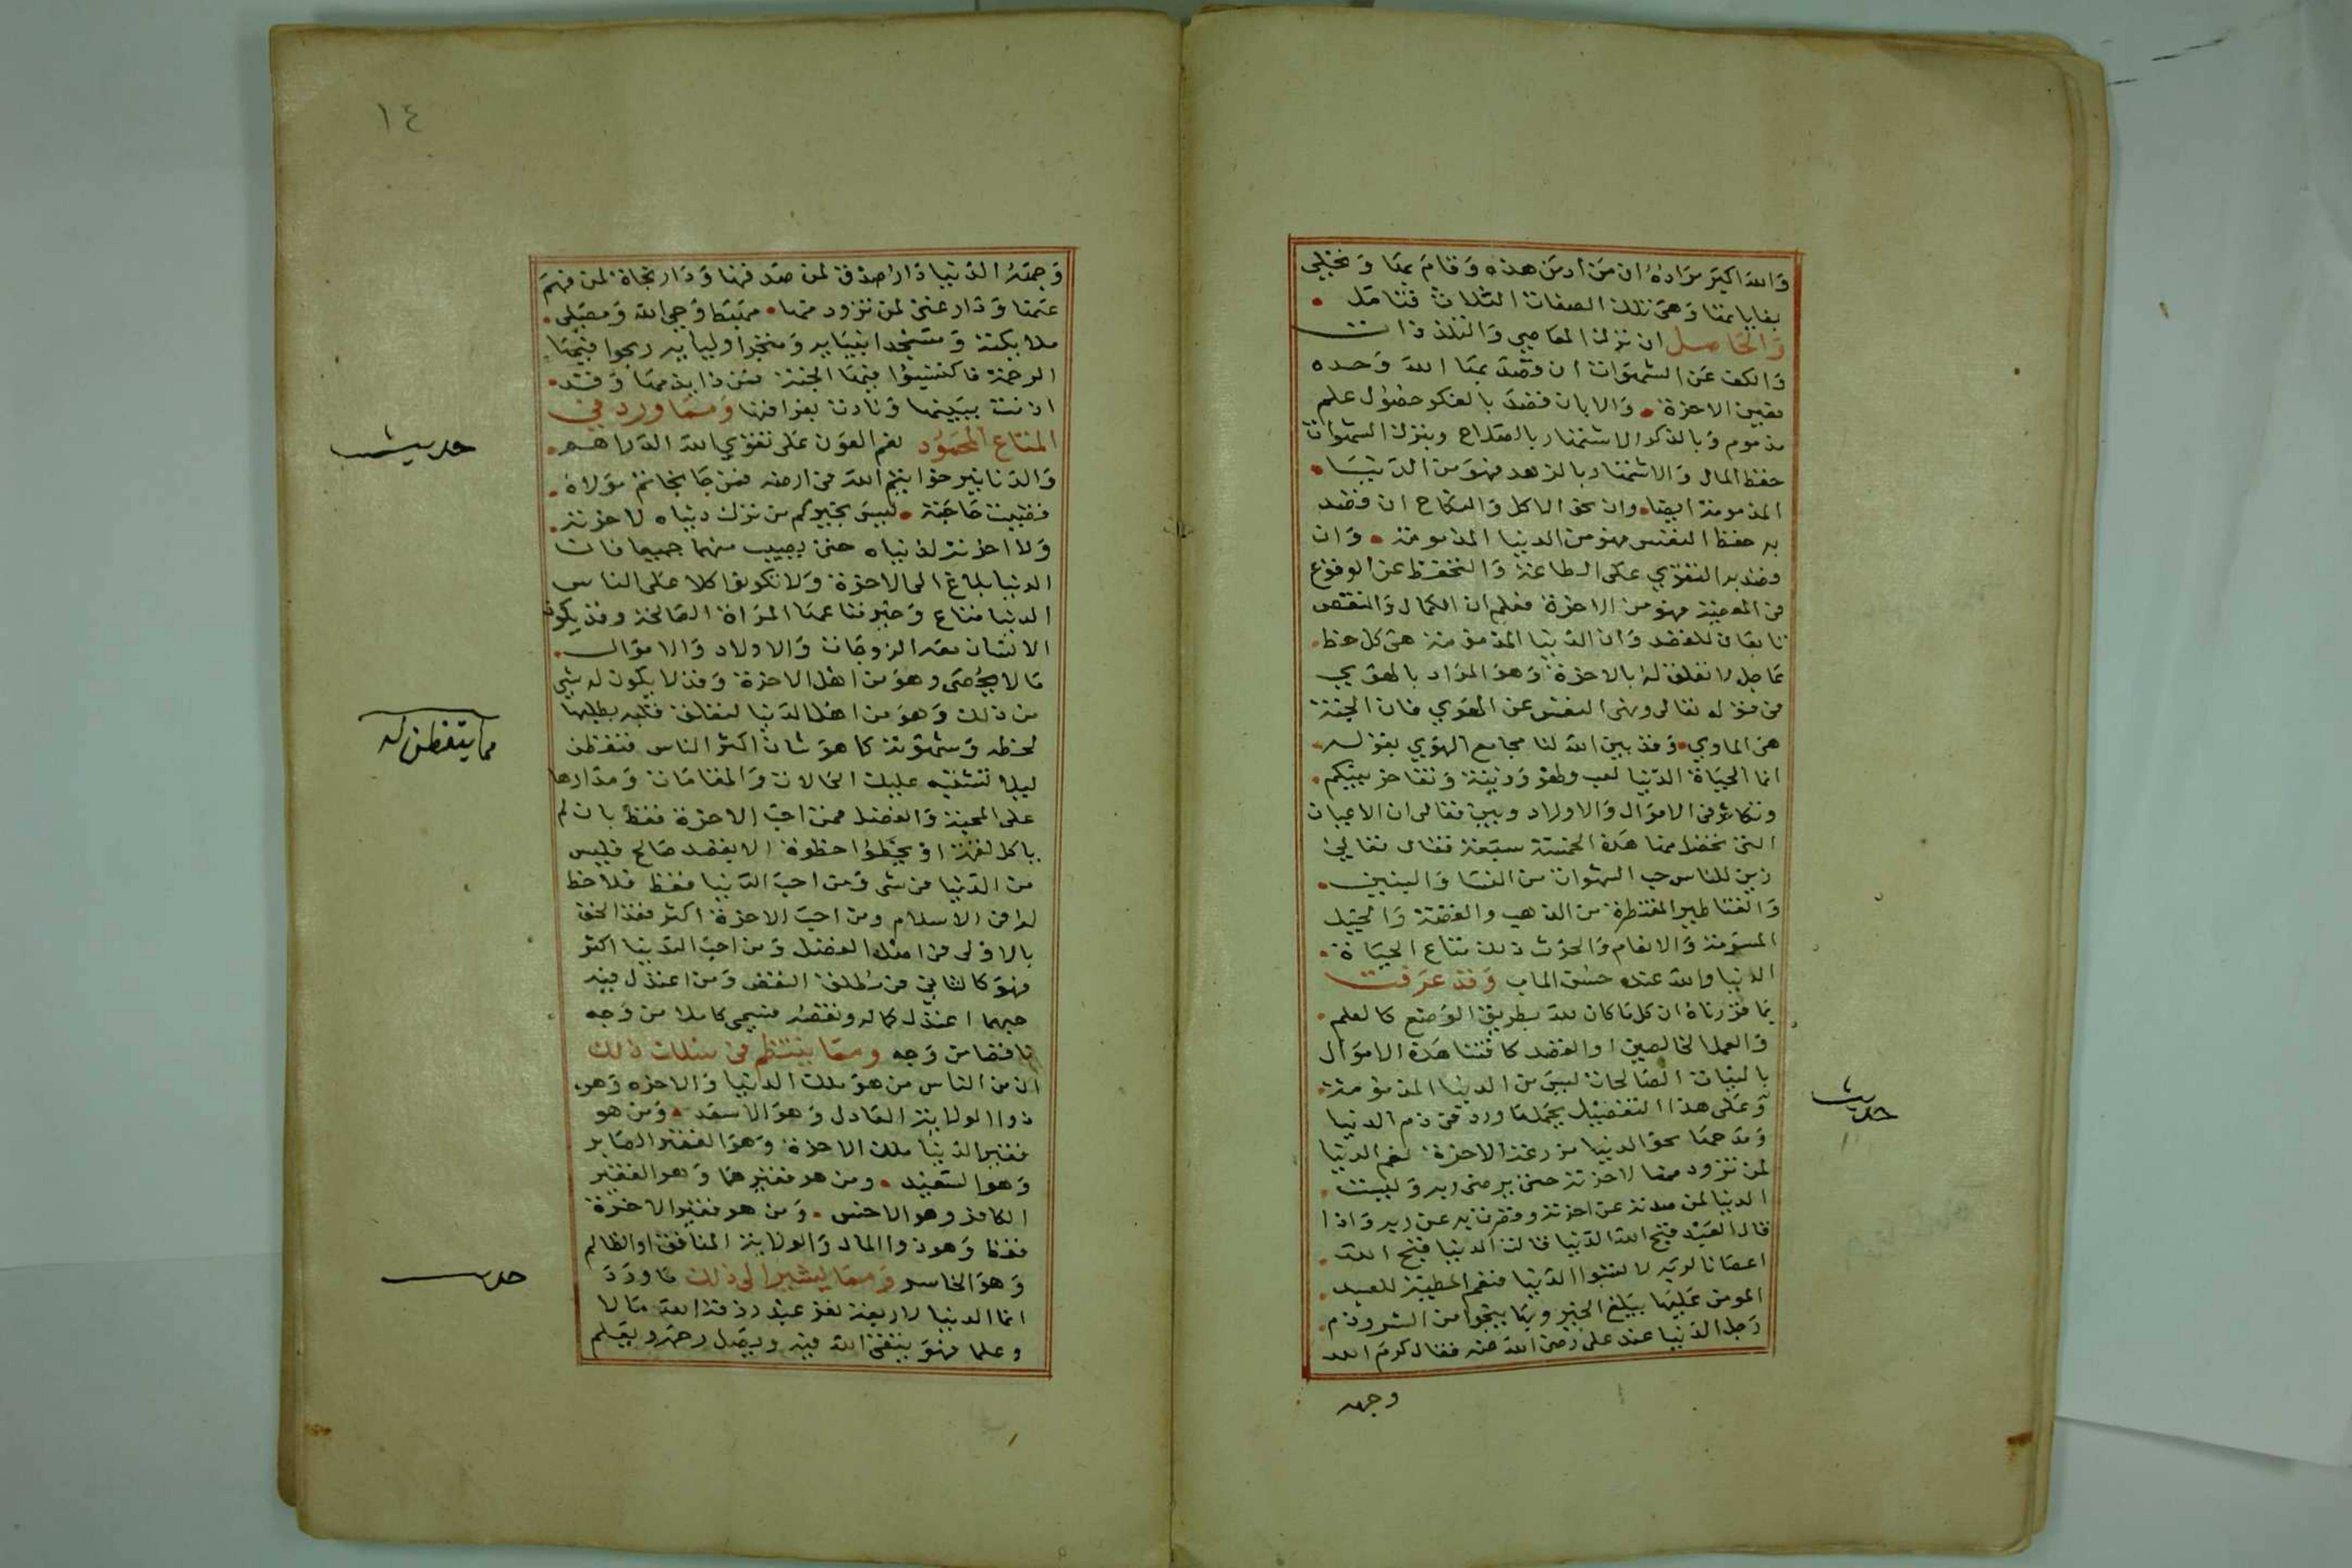 والله اكبر مراده ان من ادمن هذه وقام بها وتحلي
بقايا بمنا وهي تلك الصفات الثلاث فتامل
والحاصل ان ترك المعاصي والتلذذات
والكف عن الشهوات ان قصد بها الله وحده
فهي من الاخرة والا بان قصد بالفكر حصول علم
مذموم وبالذكر الاشتهار بالصلاح وبترك الشهوات
حفظ المال والاشتهار بالزهد فهو من الدنيا
المذمومة ايضا وان نحو الاكل والنكاح ان قصد
به حفظ النفس فهو من الدنيا المذمومة وان
قصد به التقوي على الطاعة والتحفظ عن الوقوع
في المعصية فهو من الاخرة فعلم ان الكمال والنقص
تابعان للقصد وان الدنيا المذمومة هي كل حظ
عاجل لا تعلق له بالاخرة وهو المراد بالهوي
في قوله تعالى ونهى النفس عن الهوي فان الجنة
هي الماوي وقد بين الله لنا مجامع الهوي بقوله
انما الحياة الدنيا لعب ولهو وزينة وتفاخر بينكم
وتكاثر في الاموال والاولاد وبين تعالى ان الاعيان
التي تحصل منها هذه الخمسة سبعة فقال تعالي
زين للناس حب الشهوات من النسا والبنين
والقناطير المقنطرة من الذهب والفضة والخيل
المسومة والانعام والحرث ذلك متاع الحياة
الدنيا والله عنده حسن الماب وقد عرفت
بما قررناه ان كل ما كان لله بطريق الوضع كالعلم
والعمل الخالصين او القصد كاقتنا هذه الاموال
بالنيات الصالحات ليس من الدنيا المذمومة
وعلى هذا التفصيل يحمل ما ورد في ذم الدنيا
ومدحها نحو الدنيا مزرعة الاخرة نعم الدنيا
لمن تزود منها لاخرته حتى يرضى ربه وبيست
الدنيا لمن صدته عن اخرته وقصرت به عن ربه واذا
قال العبد قبح الله الدنيا قالت الدنيا قبح الله
اعصانا لربه لا تسبوا الدنيا فنعم المطية للعبد
المومن عليها يبلغ الخير وبها ينجوا من الشر وذم
رجل الدنيا عند علي رضي الله عنه فقال كرم الله
وجهه
حديث
١٤
وجهه الدنيا دار صدق لمن صدقها ودار نجاة لمن فهم
عنها ودار غنى لمن تزود منها مهبط وحي الله ومصلى
ملايكته ومسجد انبيايه ومتجر اوليايه ربحوا فيها
الرحمة فاكتسبوا فيها الجنة فمن ذا يذمها وقد
اذنت ببينها ونادت بفراقها ومما ورد في
المتاع المحمود نعم العون على تقوي الله الدراهم
والدنانير خواتيم الله في ارضه فمن جا بخاتم مولاه
قضيت حاجته ليس بخيركم من ترك دنياه لاخرته
ولا اخرته لدنياه حتى يصيب منهما جميعا فان
الدنيا بلاغ الى الاخرة ولا تكونوا كلا على الناس
الدنيا متاع وخير متاعها المراة الصالحة وقد يكون
الانسان معه الزوجات والاولاد والاموال
ما لا يحصى وهو من اهل الاخرة وقد لا يكون له شي
من ذلك وهو من اهل الدنيا لتعلق قلبه بطلبها
لحظه وشهوته كما هو شان اكثر الناس فتفطن
ليلا تشتبه عليك الحالات والمقامات ومدارها
على المحبة والقصد فمن احب الاخرة فقط بان لم
ياكل لقمة او يخطوا خطوة الا بقصد صالح فليس
من الدنيا في شي ومن احب الدنيا فقط فلا حظ
له في الاسلام ومن احب الاخرة اكثر فقد الحق
بالاولى في اصل الفضل ومن احب الدنيا اكثر
فهو كالثاني في مطلق النقص ومن اعتدل فيه
حبهما اعتدل كماله ونقصه فسمي كاملا من وجه
ناقصا من وجه ومما ينتظم في سلك ذلك
ان من الناس من هو ملك الدنيا والاخره وهو
ذوا الولاية العادل وهو الاسعد ومن هو
فقير الدنيا ملك الاخرة وهو الفقير الصابر
وهو السعيد ومن هو فقيرهما وهو الفقير
الكافر وهو الاخس ومن هو فقير الاخرة
فقط وهو ذوا المال والولاية المنافق او الظالم
وهو الخاسر ومما يشير الى ذلك ما ورد
انما الدنيا لاربعة نفر عبد رزقه الله مالا
وعلما فهو يتقي الله فيه ويصل رحمه ويعلم
حديث
مما يتفطن له
حديث